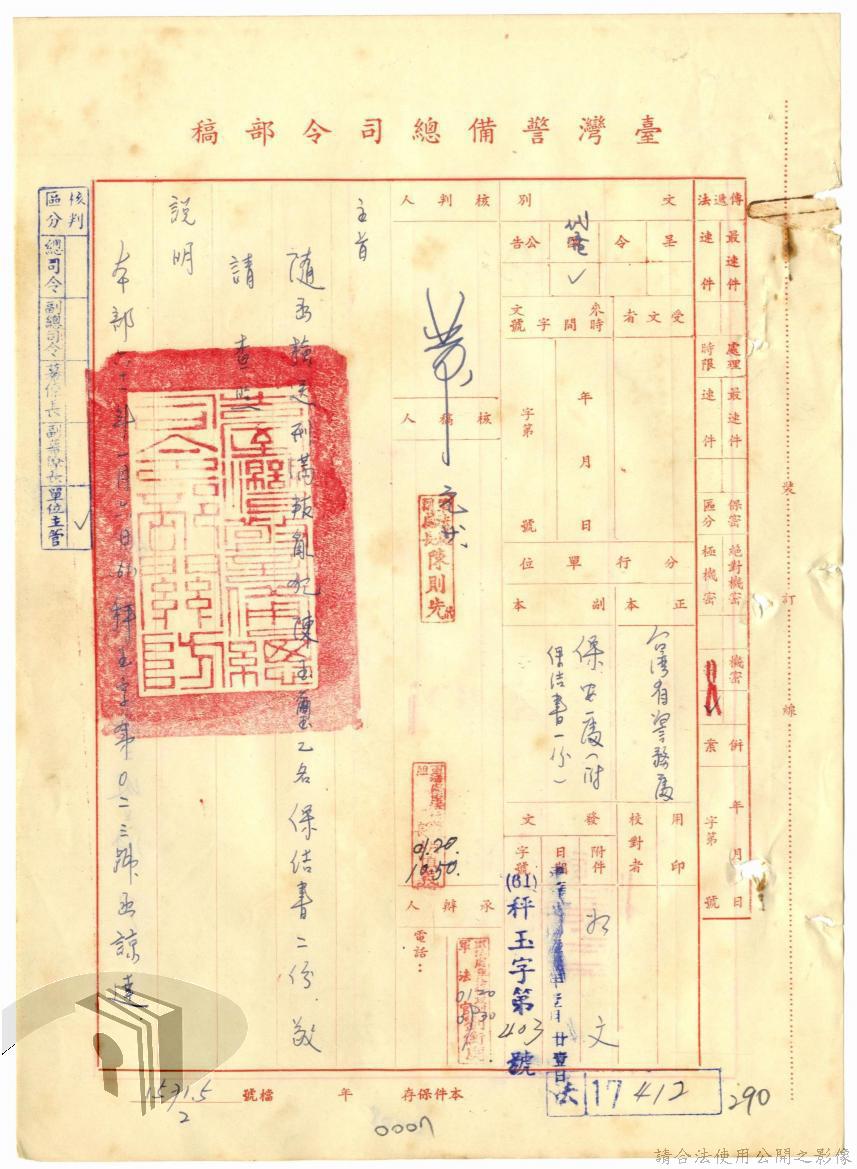 臺灣警備總司令部稿
傳遞法
最速件
速件
處理時限
最速件
速件
保密區分
絕對機密
極機密
機密
併案
年月日
字第 號
文別
呈
令
代電 ✓
公告
受文者
來文
時間
字號
年月日
字第 號
分行單位
正本
副本
台湾省警務處
保安處(附
保结書一份)
用印
校對者
發文
附件
如文
日期
廿壹日
字號
(81)秤玉字第403號
核判人
核稿人
陳則先
01.20.
1050.
承辦人
電話:
軍法官
0120
0930
主旨
隨函檢送刑滿叛亂犯陳玉璽乙名保结書二份,敬
請 查照
說明
本部
年一月 日 秤玉字第0二三號函諒達
核判區分
總司令
副總司令
參謀長
副參謀長
單位主管 ✓
本件保存 年 檔號
1571.5
2
17412
290
0007
裝訂線
請合法使用公開之影像